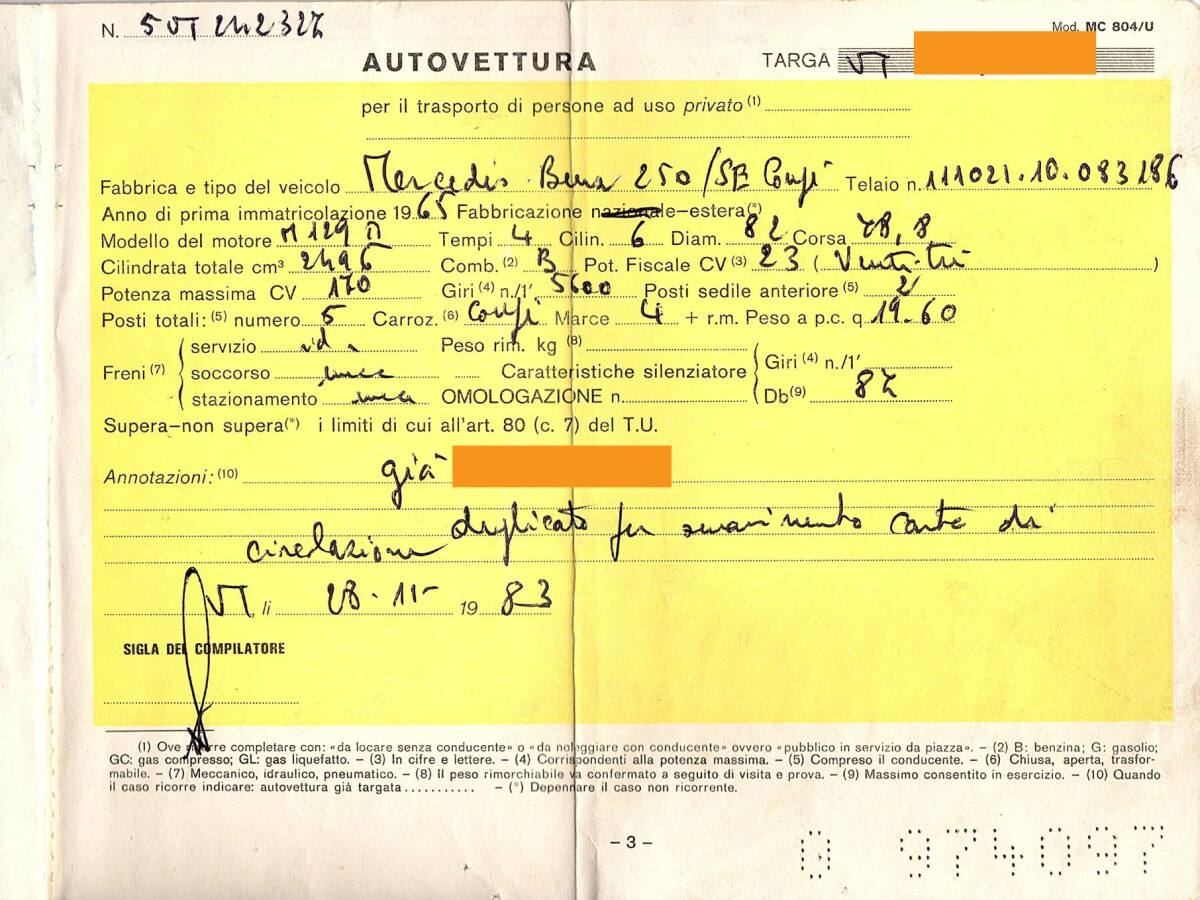 N. 5VT242327 Mod. MC 804/U
AUTOVETTURA TARGA VT
per il trasporto di persone ad uso privato (1)
Fabbrica e tipo del veicolo Mercedes Benz 250/SE Coupé Telaio n. 111021.10.083186
Anno di prima immatricolazione 1965 Fabbricazione nazionale-estera(*)
Modello del motore M 129 Tempi 4 Cilin. 6 Diam. 82 Corsa 78,8
Cilindrata totale cm³ 2496 Comb. (2) B Pot. Fiscale CV (3) 23 (Ventitré)
Potenza massima CV 170 Giri (4) n./1' 5600 Posti sedile anteriore (5) 2
Posti totali: (5) numero 5 Carroz. (6) Coupé Marce 4 + r.m. Peso a p.c. q. 19.60
Freni (7) servizio id. Peso rim. kg (8) Giri (4) n./1'
soccorso mecc Caratteristiche silenziatore
stazionamento mecc OMOLOGAZIONE n. Db (9) 87
Supera-non supera(*) i limiti di cui all'art. 80 (c. 7) del T.U.
Annotazioni: (10) già
duplicato per smarrimento carta di
circolazione
VT, li 28-11- 1983
SIGLA DEL COMPILATORE
(1) Ove ricorre completare con: «da locare senza conducente» o «da noleggiare con conducente» ovvero «pubblico in servizio da piazza». – (2) B: benzina; G: gasolio;
GC: gas compresso; GL: gas liquefatto. – (3) In cifre e lettere. – (4) Corrispondenti alla potenza massima. – (5) Compreso il conducente. – (6) Chiusa, aperta, trasfor-
mabile. – (7) Meccanico, idraulico, pneumatico. – (8) Il peso rimorchiabile va confermato a seguito di visita e prova. – (9) Massimo consentito in esercizio. – (10) Quando
il caso ricorre indicare: autovettura già targata.......... – (*) Depennare il caso non ricorrente.
– 3 –
0 974097